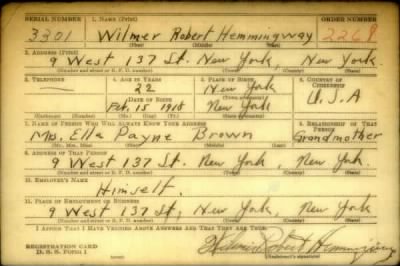 SERIAL NUMBER 1. NAME (Print) ORDER NUMBER
3301 Wilmer Robert Hemmingway 2268
(First) (Middle) (Last)
2. ADDRESS (Print)
9 West 137 St. New York, New York
(Number and street or R. F. D. number) (Town) (County) (State)
3. TELEPHONE 4. AGE IN YEARS 5. PLACE OF BIRTH 6. COUNTRY OF CITIZENSHIP
22 New York
DATE OF BIRTH (Town or county)
Feb. 15 1918 New York U.S.A
(Exchange) (Number) (Mo.) (Day) (Yr.) (State or country)
7. NAME OF PERSON WHO WILL ALWAYS KNOW YOUR ADDRESS 8. RELATIONSHIP OF THAT PERSON
Mrs. Ella Payne Brown Grandmother
(Mr., Mrs., Miss) (First) (Middle) (Last)
9. ADDRESS OF THAT PERSON
9 West 137 St. New York, New York
(Number and street or R. F. D. number) (Town) (County) (State)
10. EMPLOYER'S NAME
Himself.
11. PLACE OF EMPLOYMENT OR BUSINESS
9 West 137 St, New York, New York
(Number and street or R. F. D. number) (Town) (County) (State)
I AFFIRM THAT I HAVE VERIFIED ABOVE ANSWERS AND THAT THEY ARE TRUE.
REGISTRATION CARD
D. S. S. FORM 1 Wilmer Robert Hemmingway
(Registrant's signature)